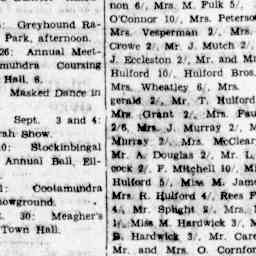 : Greyhound Ra-
Park, afternoon.
26: Annual Meet-
amundra Coursing
Hall, 8.
Masked Dance in
Sept. 3 and 4:
rah Show.
10: Stockinbingal
Annual Ball, Ell-
: Cootamundra
howground.
t. 30: Meagher's
Town Hall.
non 6/, Mrs. M. Fulk 5/,
O'Connor 10/, Mrs. Peterso
Mrs. Vesperman 2/, Mrs.
Crowe 2/, Mr. J. Mutch 2/,
J. Eccleston 2/, Mr. and Mr
Hulford 10/, Hulford Bros.
Mrs. Wheatley 6/, Mrs.
gerald 2/, Mr. T. Hulford
Mrs. Grant 2/, Mrs. Pau
2/6, Mrs. J. Murray 2/, M
Murray 2/, Mrs. McClear
Mr. A. Douglas 2/, Mr. L.
cock 2/, F. Mitchell 10/, Mi
Hulford 5/, Miss M. Jame
Mrs. R. Hulford 4/, Rees F
4/, Mr. Splight 2/, Mrs.
1/, Miss M. Hardwick 3/, M
D. Hardwick 3/, Mr. Car
Mr. and Mrs. O. Cornfor